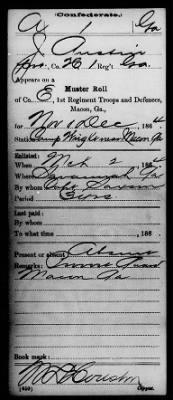 Confederate.
A 1 Ga
J. Austin
Co. 1 Reg't Ga.
Appears on a
Muster Roll
of Co. E, 1st Regiment Troops and Defences,
Macon, Ga.,
for Nov & Dec, 1864
Station Macon Ga.
Enlisted:
When Mch 2, 1864
Where Savannah Ga
By whom Capt
Period
Last paid:
By whom
To what time , 186 .
Present or absent Absent
Remarks: Guard
Macon Ga
Book mark:
Copyist.